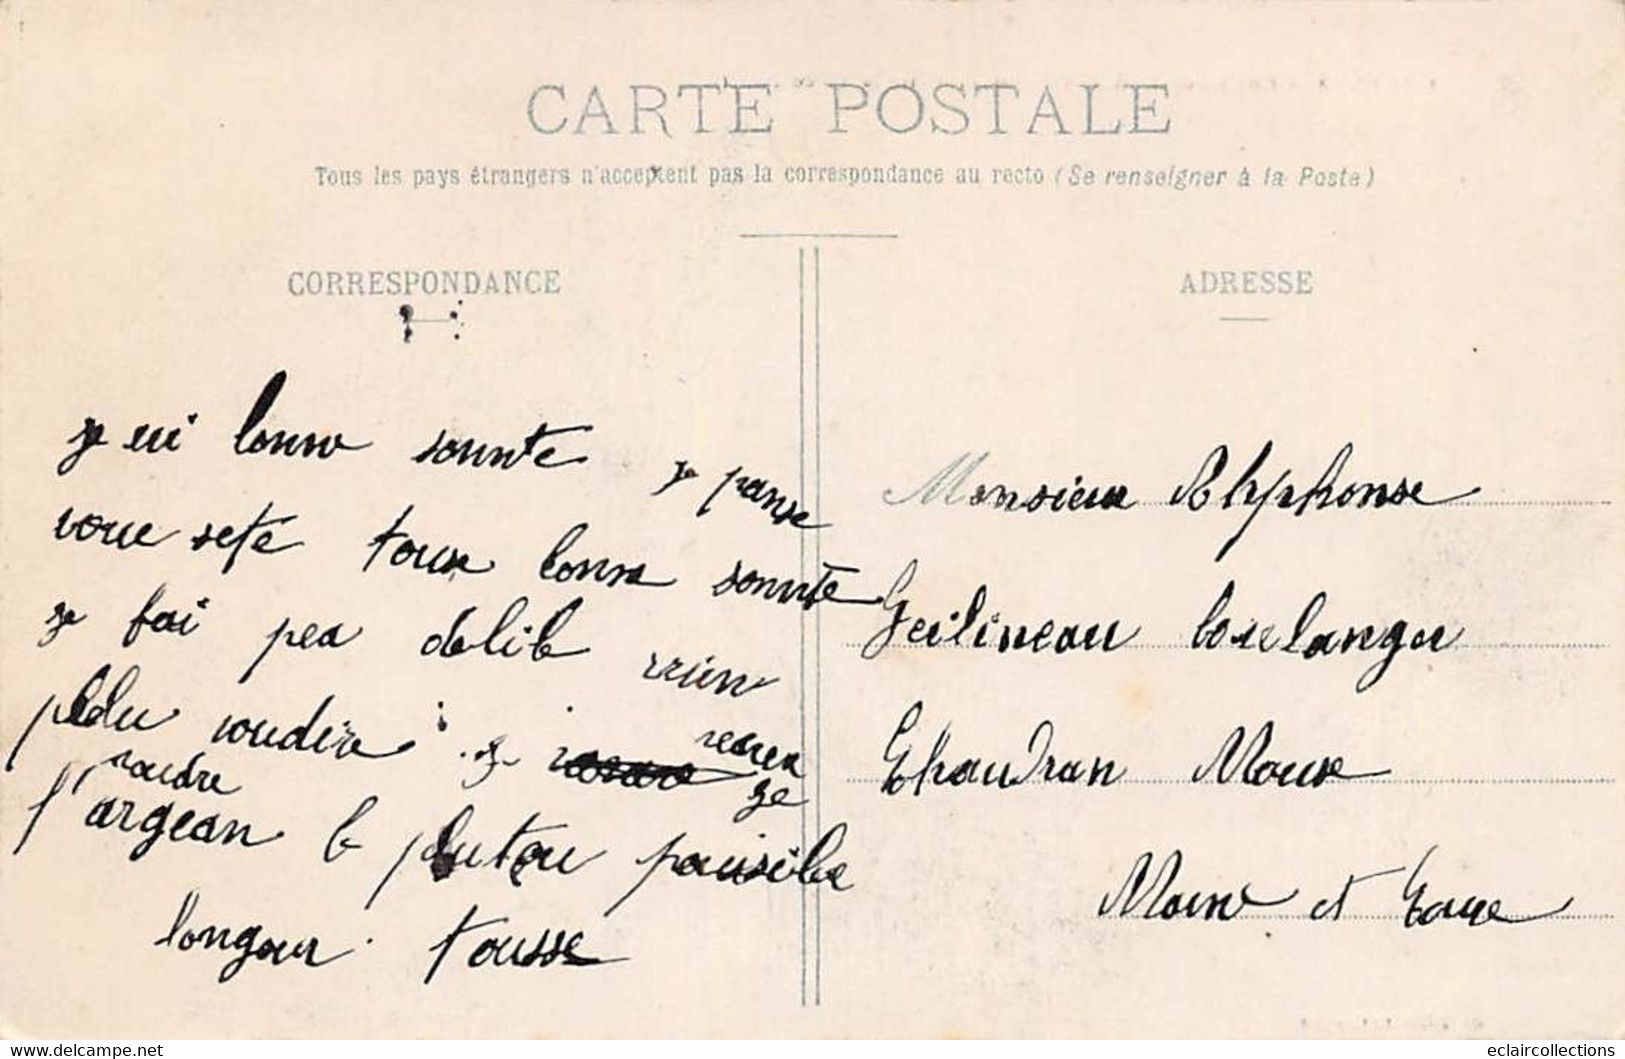 CARTE POSTALE
Tous les pays étrangers n'acceptent pas la correspondance au recto (Se renseigner à la Poste)
CORRESPONDANCE
ADRESSE
je sui bonne sonnte je panse
voue sete toux bonne sonnte
je fai pea delile rrien
pldu voudire je recrea
roudre ge
l'argean le plutou paisible
longour tousse
Monsieur Alyphonse
Geilineau boulanger
Chaudran Moux
Moine et Loire
delcampe.net
eclaircollections